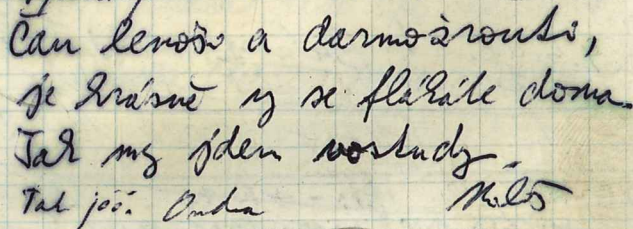 Čau lenoši a darmožrouti,
je krásně vy se flákáte doma.
Tak my jdem vostudy.
Tak jóó. Ondra Miloš